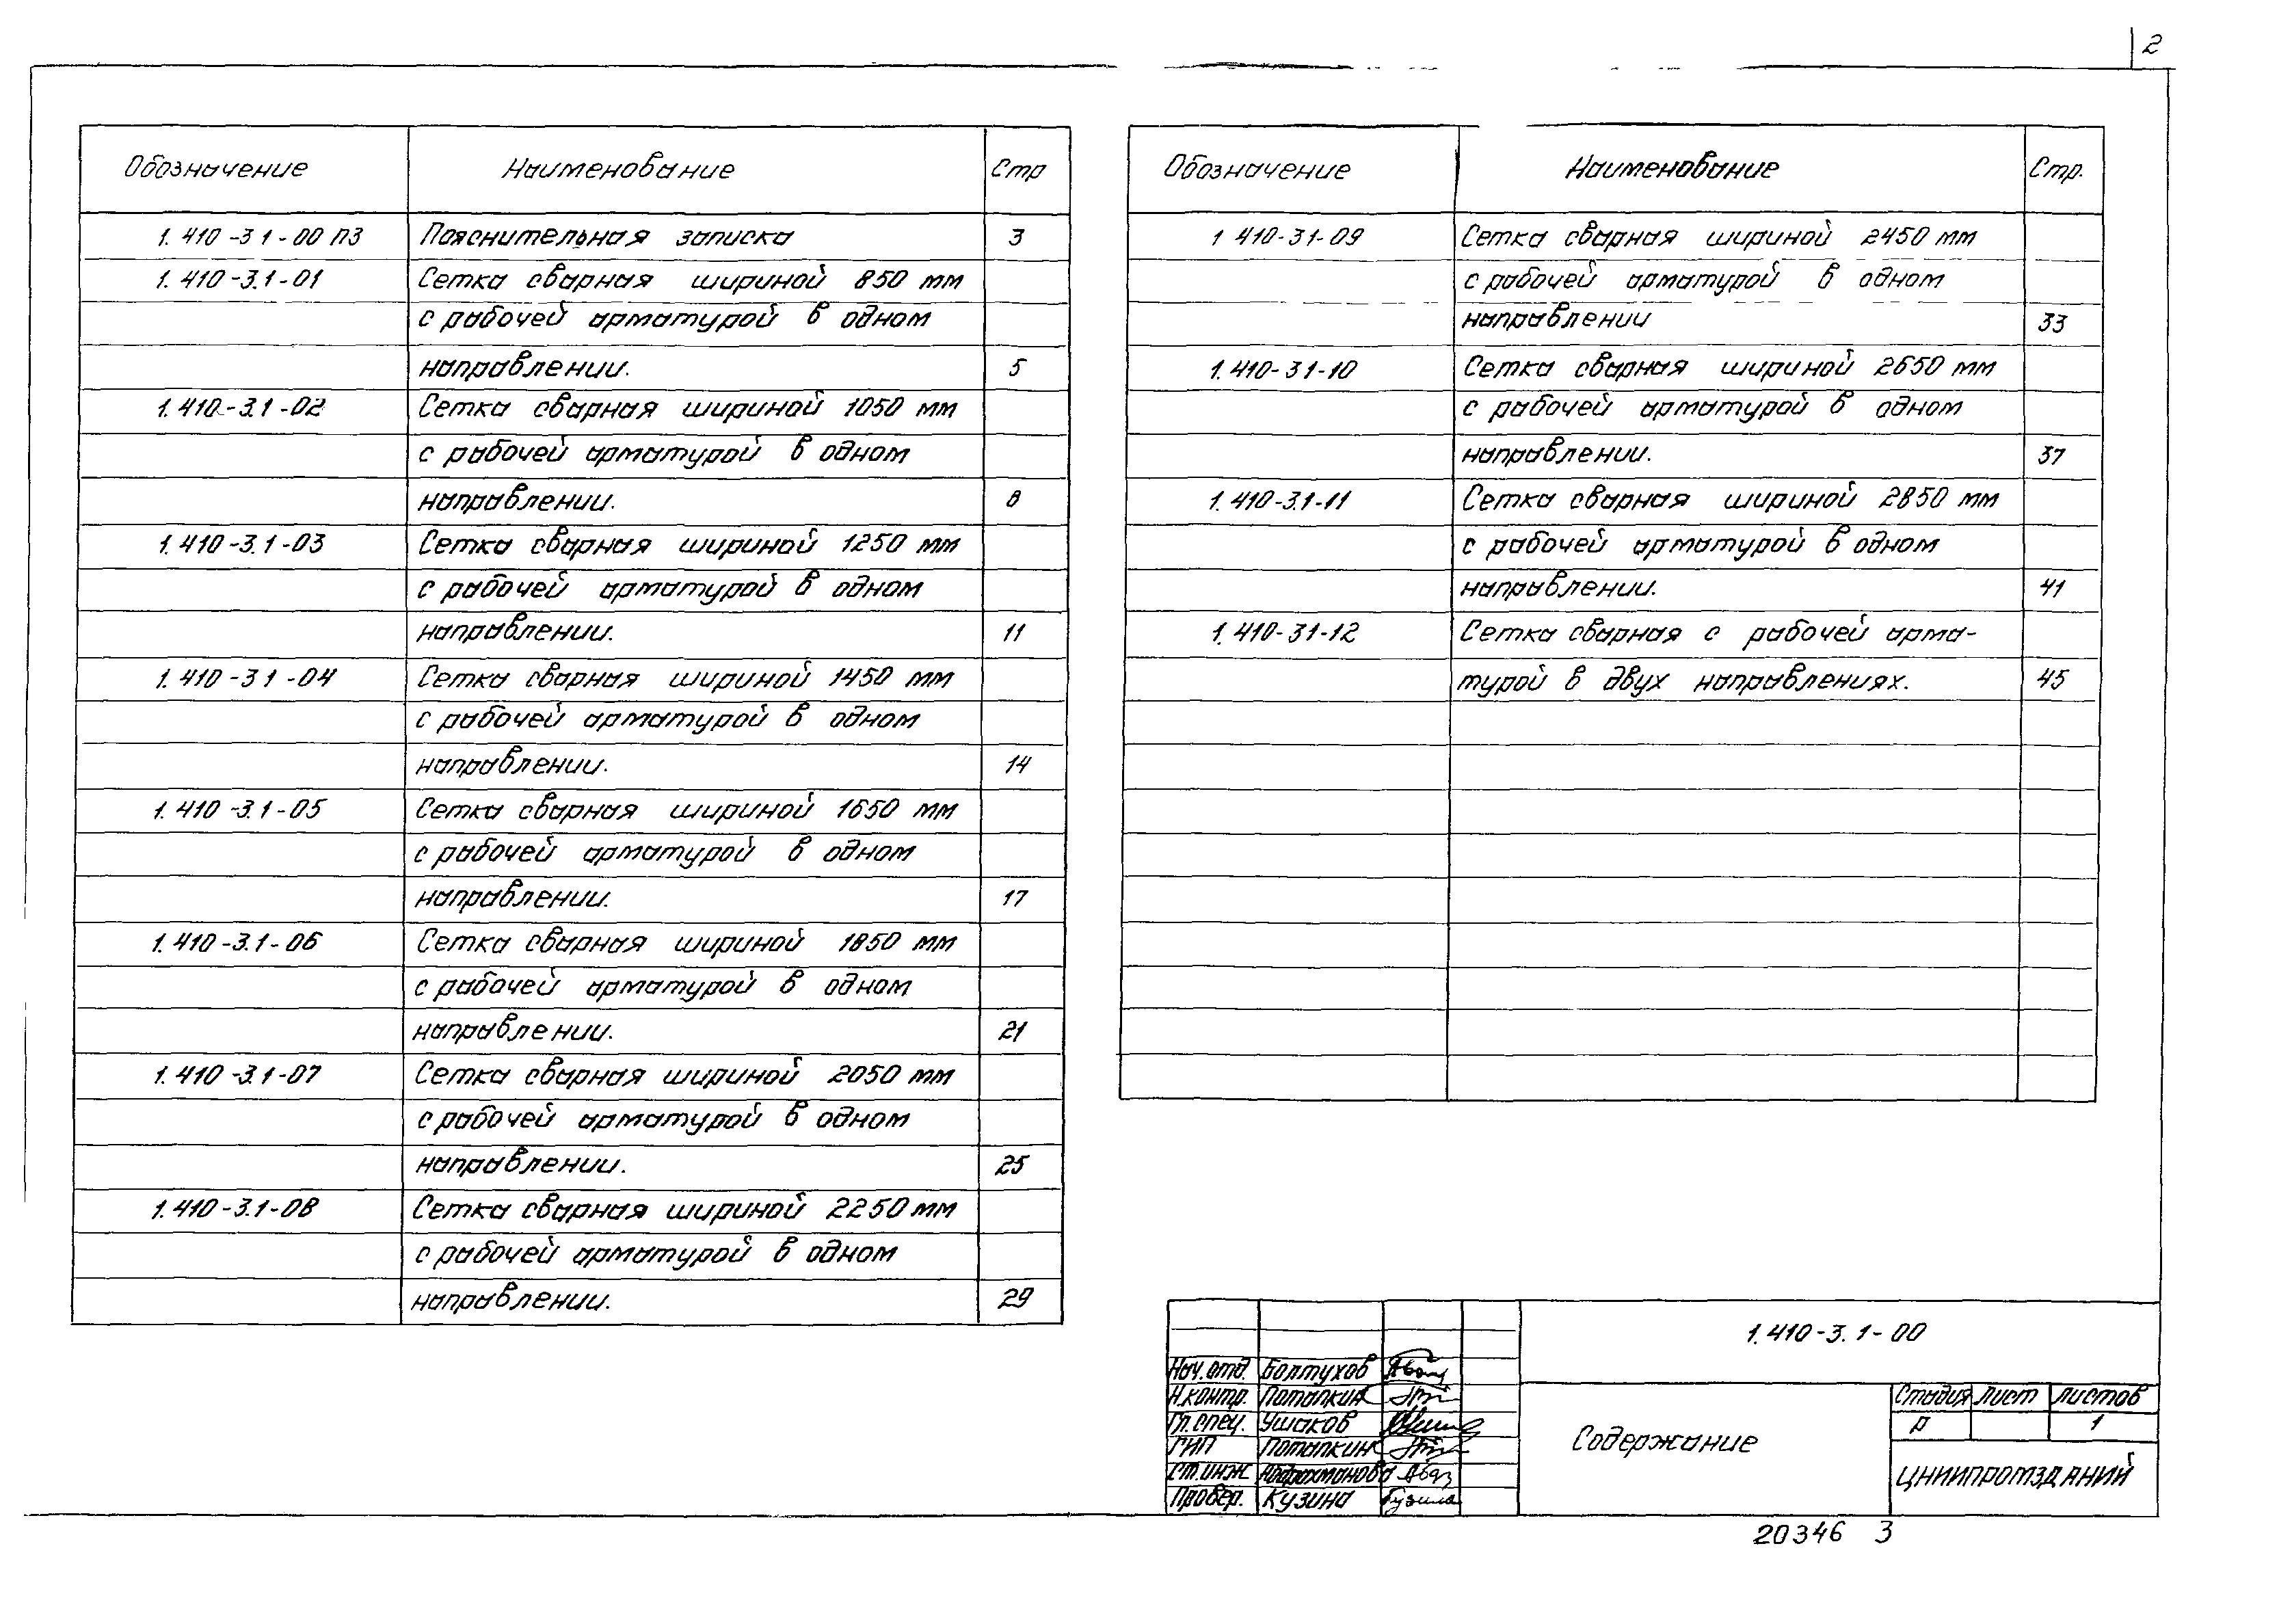 2
Обозначение Наименование Стр
1. 410-3 1-00 ПЗ Пояснительная записка 3
1. 410-3.1-01 Сетка сварная шириной 850 мм
с рабочей арматурой в одном
направлении. 5
1. 410-3.1-02 Сетка сварная шириной 1050 мм
с рабочей арматурой в одном
направлении. 8
1. 410-3.1-03 Сетка сварная шириной 1250 мм
с рабочей арматурой в одном
направлении. 11
1. 410-3 1-04 Сетка сварная шириной 1450 мм
с рабочей арматурой в одном
направлении. 14
1. 410-3.1-05 Сетка сварная шириной 1650 мм
с рабочей арматурой в одном
направлении. 17
1. 410-3.1-06 Сетка сварная шириной 1850 мм
с рабочей арматурой в одном
направлении. 21
1. 410-3.1-07 Сетка сварная шириной 2050 мм
с рабочей арматурой в одном
направлении. 25
1. 410-3.1-08 Сетка сварная шириной 2250 мм
с рабочей арматурой в одном
направлении. 29
Обозначение Наименование Стр.
1 410-31-09 Сетка сварная шириной 2450 мм
с рабочей арматурой в одном
направлении 33
1. 410-31-10 Сетка сварная шириной 2650 мм
с рабочей арматурой в одном
направлении. 37
1. 410-3.1-11 Сетка сварная шириной 2850 мм
с рабочей арматурой в одном
направлении. 41
1. 410-31-12 Сетка сварная с рабочей арма-
турой в двух направлениях. 45
1. 410-3. 1-00
Нач. отд. Болтухов
Н.контр. Потапкин
Гл. спец. Ушаков
ГИП Потапкин
Ст. инж Абдрахманова
Провер. Кузина Кузина
Содержание
Стадия Лист Листов
Р 1
ЦНИИПРОМЗДАНИЙ
20346 3